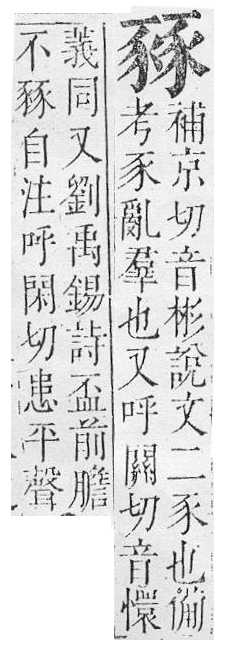 豩
補京切音彬說文二豕也備
考豕亂羣也又呼關切音懁
義同又劉禹錫詩盃前膽
不豩自注呼閑切患平聲